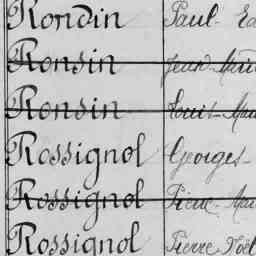 Rondin Paul-
Ronsin Jean-
Ronsin Louis-
Rossignol Georges-
Rossignol Pierre-
Rossignol Pierre Noël